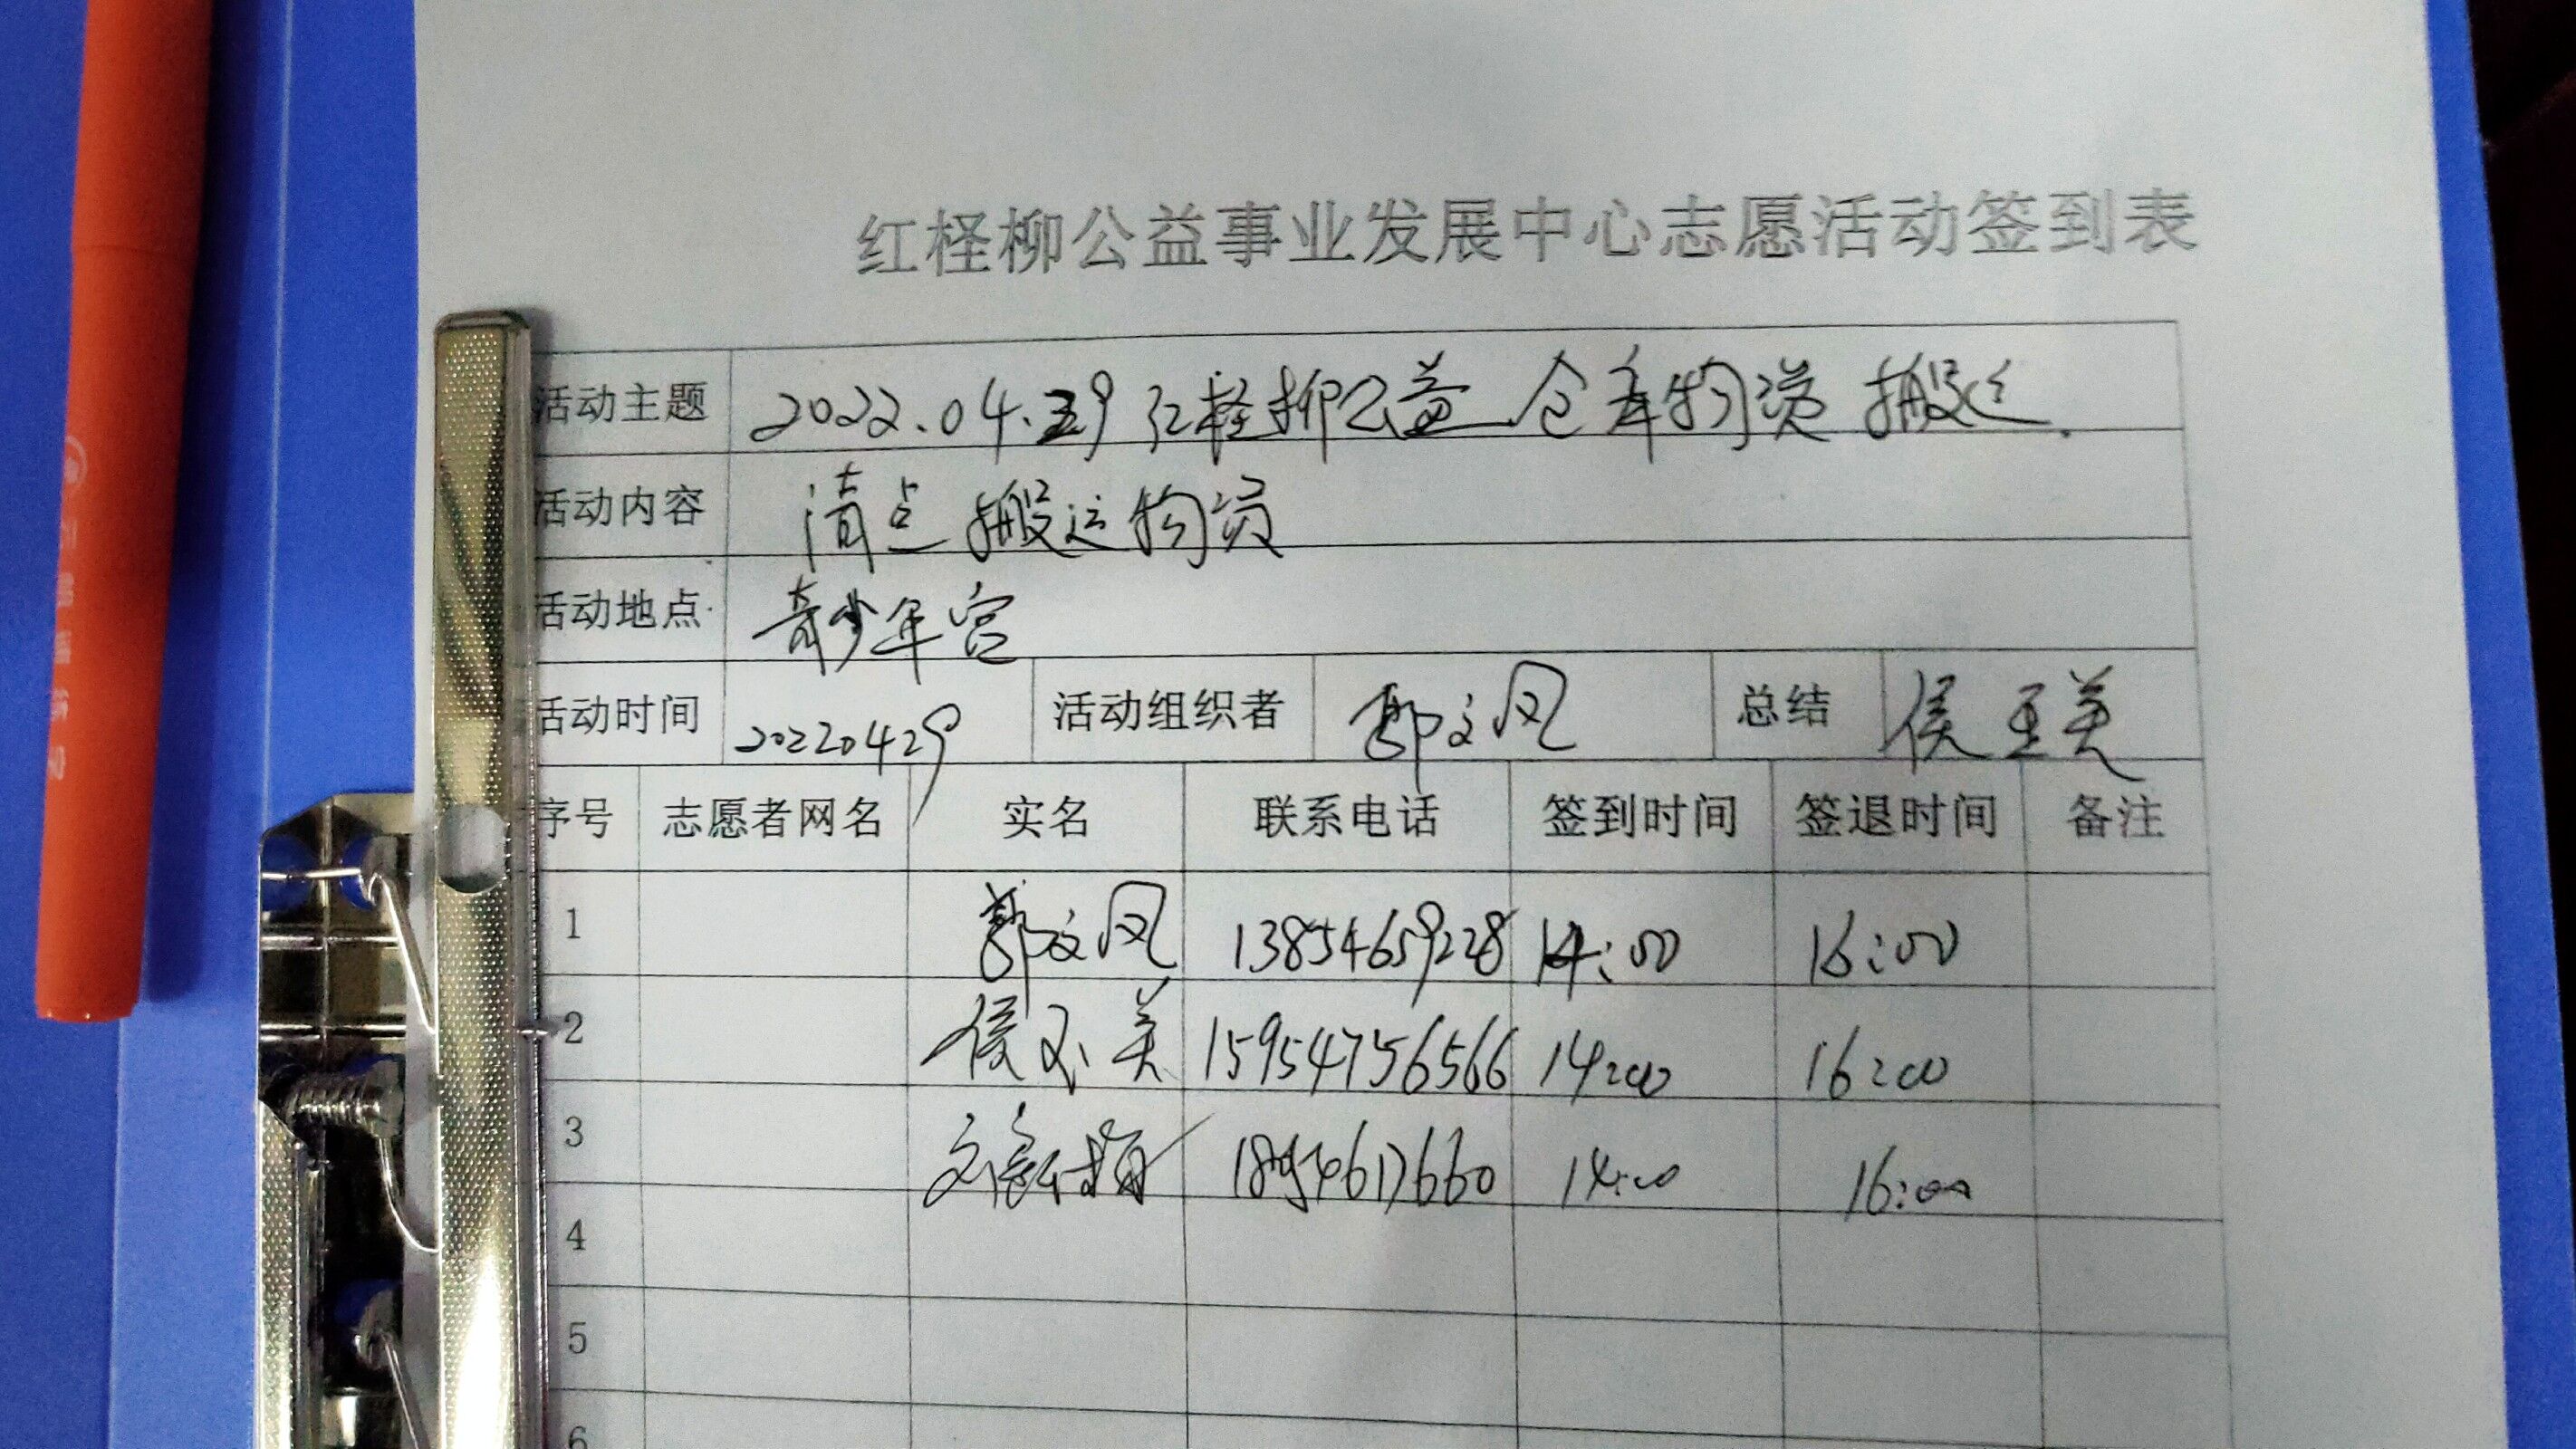 红柽柳公益事业发展中心志愿活动签到表
活动主题 2022.04.29 红柽柳公益仓库物资搬运.
活动内容 清点搬运物资
活动地点 青少年宫
活动时间 20220429 活动组织者 郭文风 总结 侯玉美
序号 志愿者网名 实名 联系电话 签到时间 签退时间 备注
1 郭文风 13854659228 14:00 16:00
2 侯玉美 15954756566 14:00 16:00
3 14:00 16:00
4
5
6